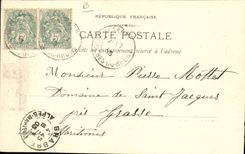 RÉPUBLIQUE FRANÇAISE
CARTE POSTALE
Ce côté est exclusivement réservé à l'adresse
Monsieur Pierre Mottet
Domaine de Saint Jacques
près Grasse
Maritimes
GRASSE